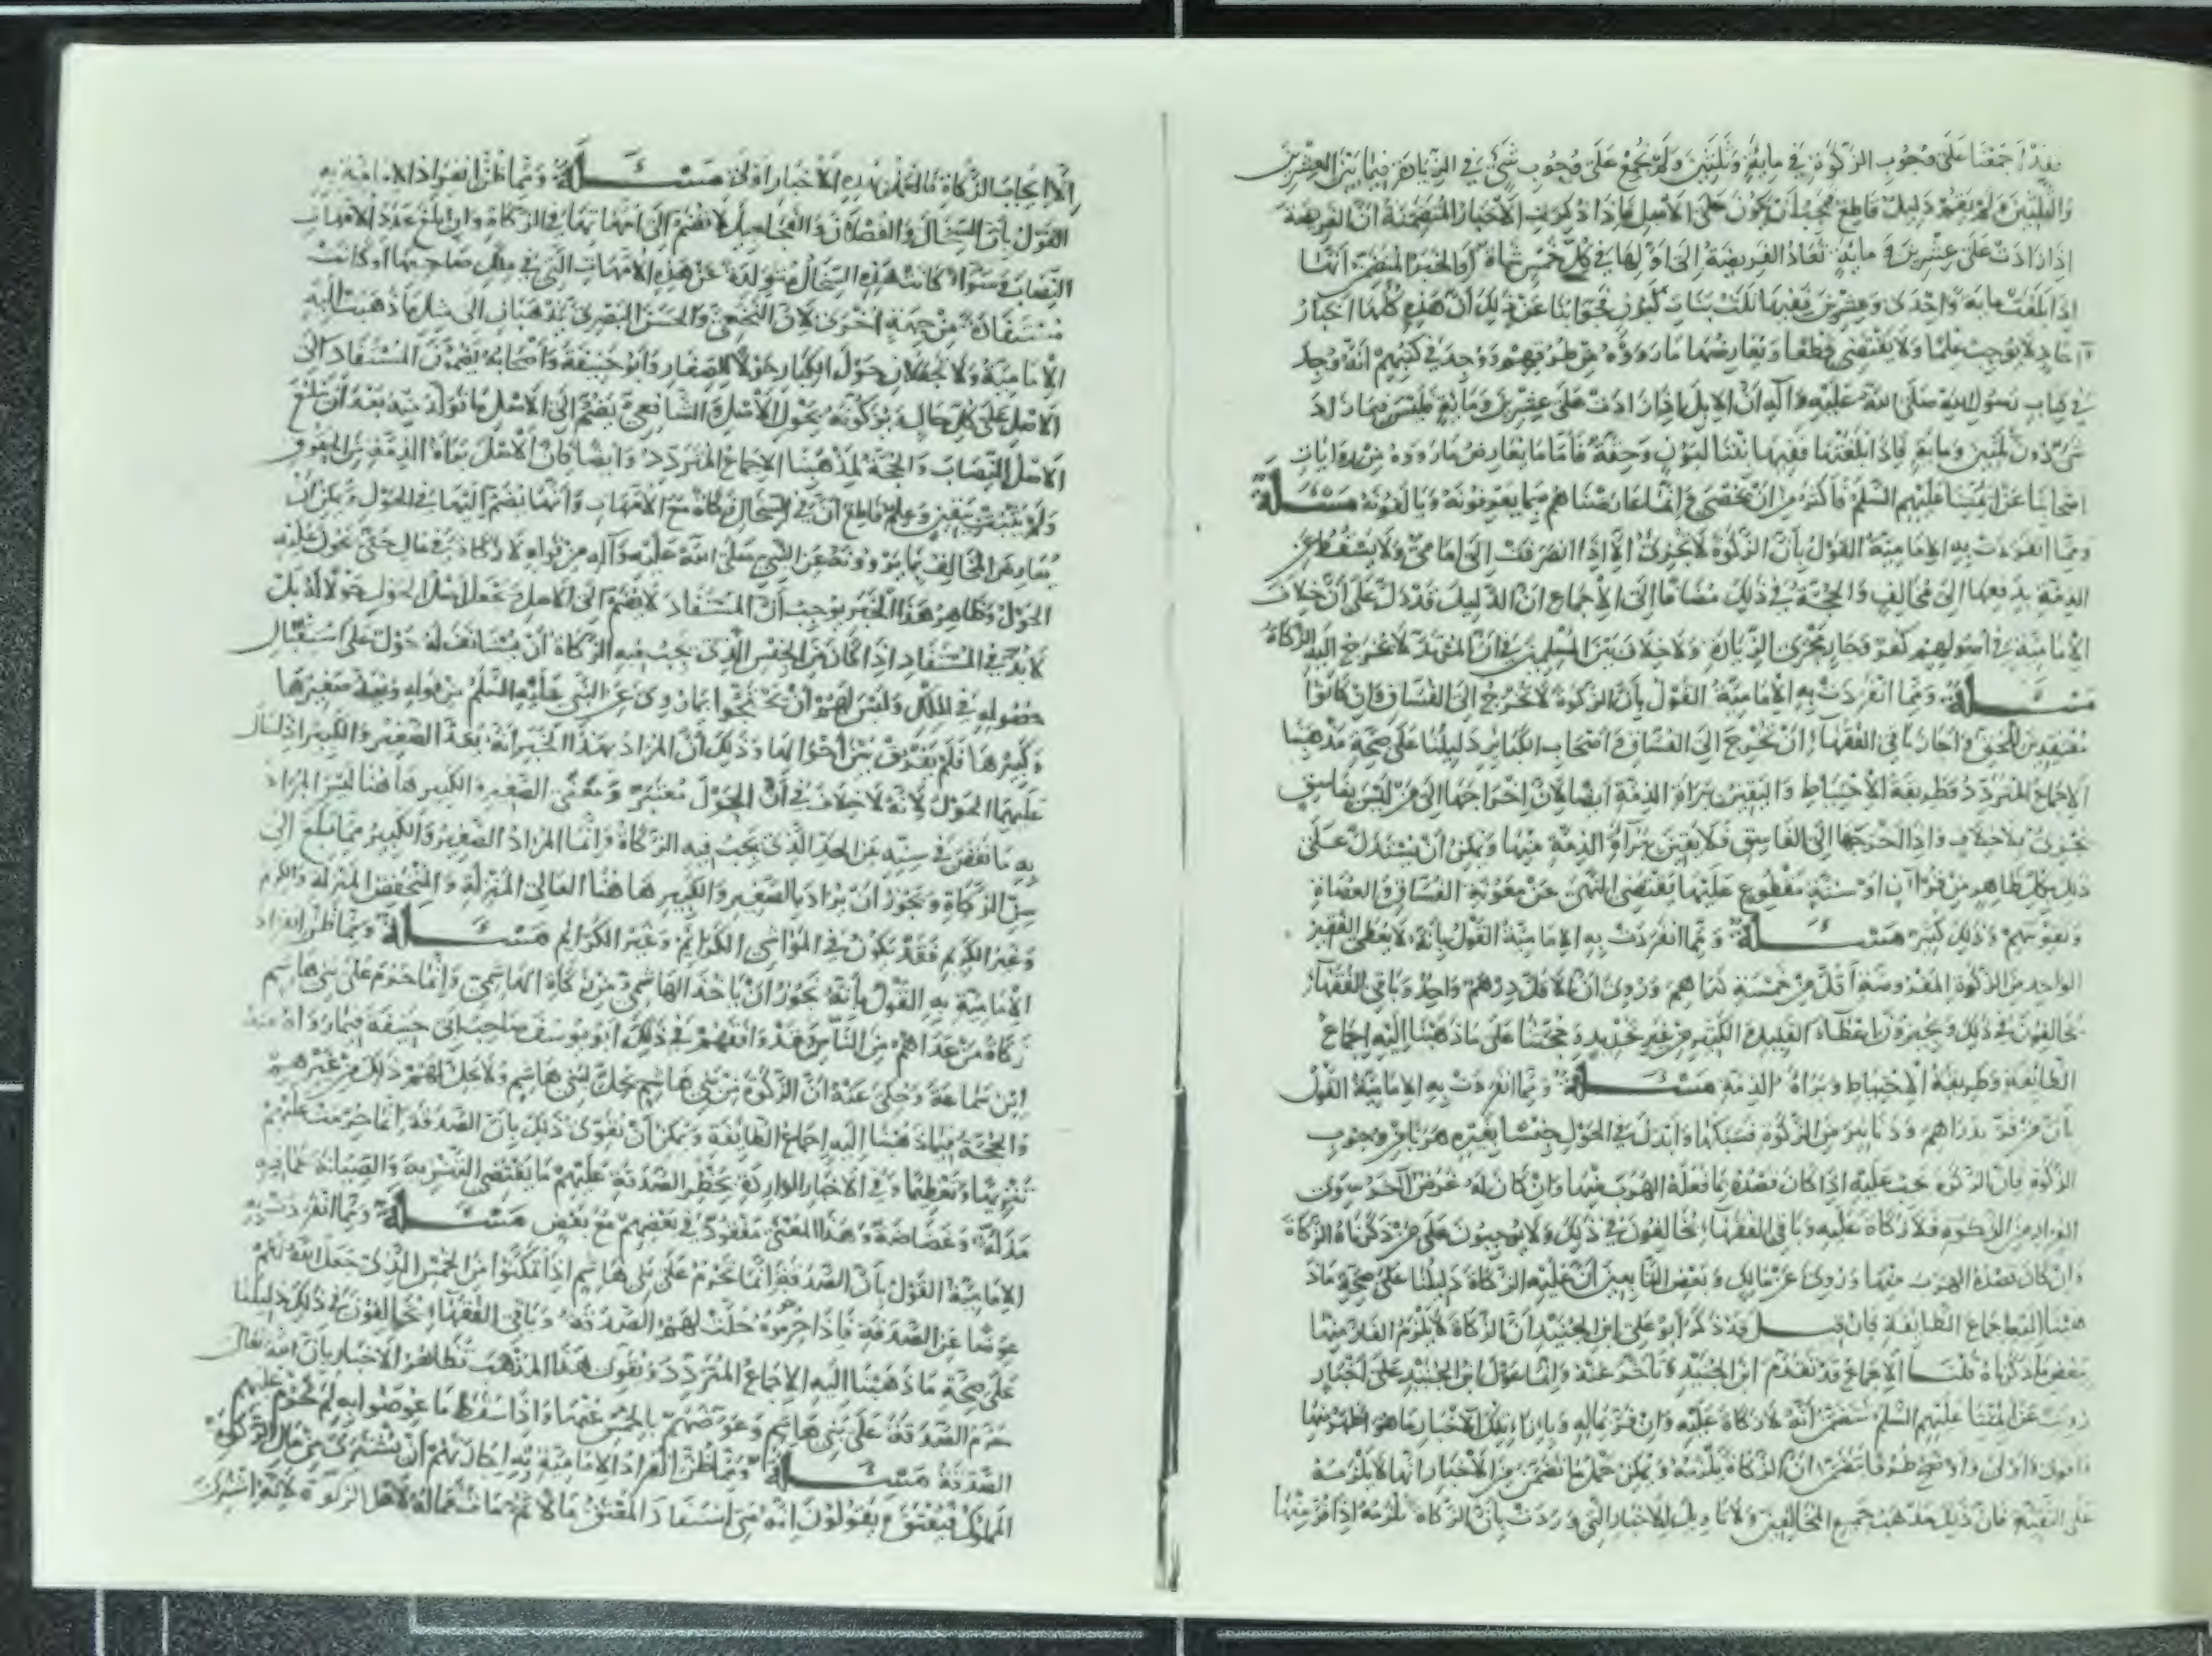 فقد أجمعنا على وجوب الزكوة في مايه وثلثين ولم نجمع على وجوب شيء في الزيادة فيما بين العشرين
والثلثين ولم يقم دليل قاطع فيجب أن يكون على الأصل فإذا ذكرت الأخبار المتضمنة أن الفريضة
إذا زادت على عشرين ومايه تعاد الفريضة إلى أولها في كل خمس شاة أو الخبر المتضمن أنها
إذا بلغت مايه وإحدى وعشرين ففيها ثلث بنات لبون فجوابنا عن ذلك أن هذه كلها أخبار
آحاد لا توجب علما ولا تقتضي قطعا ويعارضها ما رووه من طرقهم ووجد في كتبهم أنه وجد
في كتاب رسول الله صلى الله عليه وآله أن الإبل إذا زادت على عشرين ومايه فليس فيما زاد
شيء دون ثلثين ومايه فإذا بلغتها ففيها بنتا لبون وحقة فأما ما يعارض ما رووه من روايات
أصحابنا عن أئمتنا عليهم السلم فأكثر من أن تحصى وإنما عارضناهم بما يعرفونه ويألفونه مسئلة
ومما انفردت به الإمامية القول بأن الزكوة لا تجزئ إلا إذا انصرفت إلى إمامي ولا يسقط عن
الذمة بدفعها إلى مخالف والحجة في ذلك مضافا إلى الإجماع أن الدليل قد دل على أن خلاف
الإمامية في أصولهم كفر وجار مجرى الردة ولا خلاف بين المسلمين في أن المرتد لا تخرج إليه الزكاة
مسئلة ومما انفردت به الإمامية القول بأن الزكوة لا تخرج إلى الفساق وإن كانوا
معتقدين للحق وأجاز باقي الفقهاء أن تخرج إلى الفساق وأصحاب الكباير دليلنا على صحة مذهبنا
الإجماع المتردد وطريقة الاحتياط واليقين ببراءة الذمة أيضا لأن إخراجها إلى من ليس بفاسق
مجزئ بلا خلاف وإذا أخرجها إلى الفاسق فلا يقين ببراءة الذمة منها ويمكن أن يستدل على
ذلك بكل ظاهر من قرآن أو سنة مقطوع عليها يقتضي النهي عن معونة الفساق والعصاة
وتقويتهم وذلك كثير مسئلة ومما انفردت به الإمامية القول بأنه لا يعطى الفقير
الواحد من الزكوة المفروضة أقل من خمسة دراهم وروي أن الأقل درهم واحد وباقي الفقهاء
يخالفون في ذلك ويجيزون إعطاء القليل والكثير من غير تحديد وحجتنا على ما ذهبنا إليه إجماع
الطائفة وطريقة الاحتياط وبراءة الذمة مسئلة ومما انفردت به الإمامية القول
بأن من فر بدراهم ودنانير من الزكوة فسبكها أو أبدل في الحول جنسا بغيره هربا من وجوب
الزكوة فإن الزكوة تجب عليه إذا كان قصده بما فعله الهرب منها وإن كان له غرض آخر سوى
الفرار من الزكوة فلا زكاة عليه وباقي الفقهاء يخالفون في ذلك ولا يوجبون على من ذكرناه الزكاة
وإن كان قصده الهرب منها وروي عن مالك وبعض التابعين أن عليه الزكاة دليلنا على صحة ما ذ
هبنا إليه إجماع الطائفة فإن قيل قد ذكر أبو علي ابن الجنيد أن الزكاة لا تلزم الفار منها
ببعض ما ذكرناه قلنا الإجماع قد تقدم ابن الجنيد وتأخر عنه وإنما عول ابن الجنيد على أخبار
رويت عن أئمتنا عليهم السلم تتضمن أنه لا زكاة عليه وإن فر بماله وبإزاء تلك الأخبار ما هو أظهر منها
وأقوى وأولى وأوضح طرقا تتضمن أن الزكاة تلزمه ويمكن حمل ما تضمن من الأخبار أنها لا تلزمه
على التقية فإن ذلك مذهب جميع المخالفين ولا تأويل للأخبار التي وردت بأن الزكاة تلزمه إذا فر منها
إلا إيجاب الزكاة فالعمل بهذه الأخبار أولى مسئلة ومما ظن انفراد الإمامية به
القول بأن السخال والفصلان والعجاجيل لا تضم إلى أمهاتها في الزكاة وإن بلغ عدد الأمهات
النصاب وسواء كانت هذه السخال متولدة عن هذه الأمهات التي في ملك صاحبها أو كانت
مستفادة من جهة أخرى لأن النخعي والحسن البصري يذهبان إلى مثل ما ذهبت إليه
الإمامية ولا يجعلان حول الكبار حولا للصغار وأبو حنيفة وأصحابه يضمون المستفاد إلى
الأصل على كل حال ويزكونه بحول الأصل والشافعي يضم إلى الأصل ما تولد منه بعد أن يبلغ
الأصل النصاب والحجة لمذهبنا الإجماع المتردد وأيضا فإن الأصل براءة الذمة من الحقوق
ولم يثبت بيقين وعلم قاطع أن في السخال زكاة مع الأمهات وأنها تضم إليها في الحول ويمكن أن
يعارض المخالف بما يروونه عن النبي صلى الله عليه وآله من قوله لا زكاة في مال حتى يحول عليه
الحول وظاهر هذا الخبر يوجب أن المستفاد لا يضم إلى الأصل ويجعل أصل الحول حولا له بل
لا بد في المستفاد إذا كان من الجنس الذي تجب فيه الزكاة أن يستأنف له حول على استقبال
حصوله في الملك وليس لهم أن يحتجوا بما روي عن النبي عليه السلم من قوله ويعد صغيرها
وكبيرها فلم يفرق بين أحوالها وذلك أن المراد بهذا الخبر أنه يعد الصغير والكبير إذا حال
عليهما الحول لأنه لا خلاف في أن الحول معتبر ومعنى الصغير والكبير هاهنا ليس المراد
به ما نقص في سنه عن الحد الذي يجب فيه الزكاة وإنما المراد الصغير والكبير مما بلغ إلى
سن الزكاة ويجوز أن يراد بالصغير والكبير هاهنا العالي المنزلة والمنخفض المنزلة والكريم
وغير الكريم فقد يكون في المواشي الكرايم وغير الكرايم مسئلة ومما ظن انفراد
الإمامية به القول بأنه يجوز أن يأخذ الهاشمي من زكاة الهاشمي وإنما حرم على بني هاشم
زكاة من عداهم من الناس وقد وافقهم في ذلك أبو يوسف صاحب أبي حنيفة فيما رواه عنه
ابن سماعة وحكى عنه أن الزكوة من بني هاشم تحل لبني هاشم ولا يحل لهم ذلك من غيرهم
والحجة فيما ذهبنا إليه إجماع الطايفة ويمكن أن يقوى ذلك بأن الصدقة إنما حرمت عليهم
تنزيها وتعظيما وفي الأخبار الواردة بحظر الصدقة عليهم ما يقتضي التنزيه والصيانة عما فيه
مذلة وغضاضة وهذا المعنى مفقود في بعضهم مع بعض مسئلة ومما انفردت به
الإمامية القول بأن الصدقة إنما تحرم على بني هاشم إذا تمكنوا من الخمس الذي جعل الله لهم
عوضا عن الصدقة فإذا حرموه حلت لهم الصدقة وباقي الفقهاء يخالفون في ذلك دليلنا
على صحة ما ذهبنا إليه الإجماع المتردد ويقوى هذا المذهب بظاهر الأخبار بأن الله تعالى
حرم الصدقة على بني هاشم وعوضهم بالخمس عنها وإذا سقط ما عوضوا به لم تحرم عليهم
الصدقة مسئلة ومما ظن انفراد الإمامية به إجازتهم أن يشترى من مال الزكوة
المملوك فيعتق ويقولون إنه متى استفاد المعتق مالا ثم مات فماله لأهل الزكوة لأنه اشتري